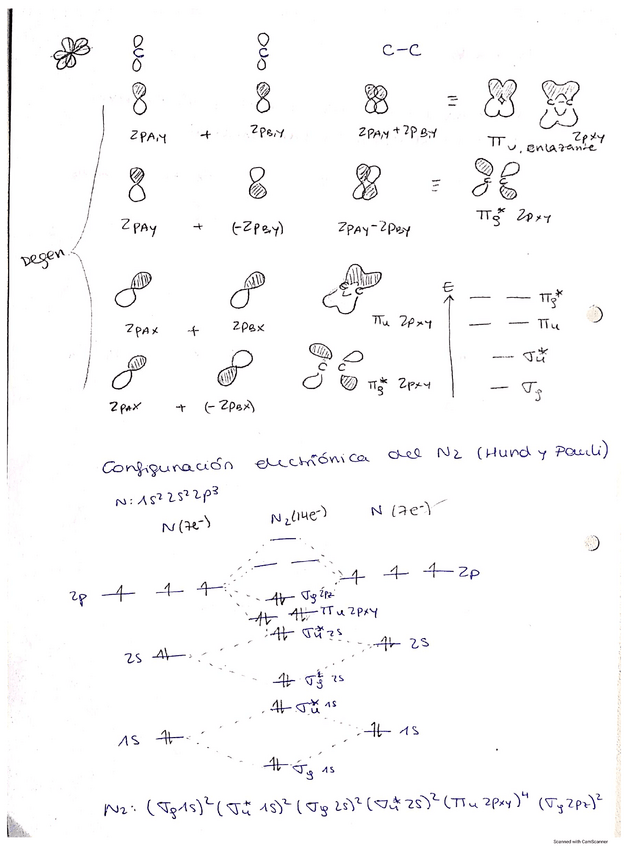 C C C-C
2pA,y + 2pB,y 2pAy + 2pB,y ≡ πu, enlazante 2pxy
2pAy + (-2pB,y) 2pAy - 2pBy ≡ πg* 2pxy
Degen
2pAx + 2pBx πu 2pxy
2pAx + (-2pBx) πg* 2pxy
E
πg*
πu
σu*
σg
Configuración electrónica del N2 (Hund y Pauli)
N: 1s² 2s² 2p³
N (7e⁻) N2 (14e⁻) N (7e⁻)
2p 2p
σg 2pz
πu 2pxy
σu* 2s
2s 2s
σg 2s
σu* 1s
1s 1s
σg 1s
N2: (σg 1s)² (σu* 1s)² (σg 2s)² (σu* 2s)² (πu 2pxy)⁴ (σg 2pz)²
Scanned with CamScanner